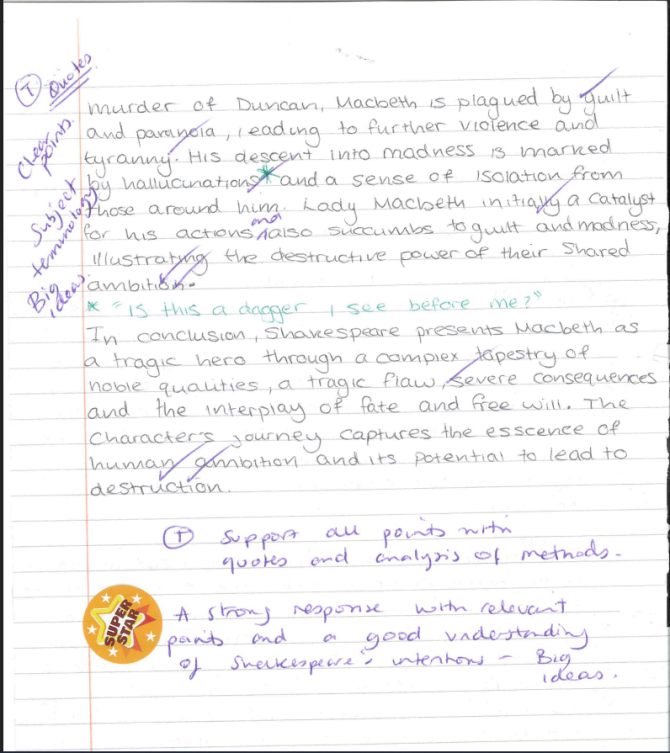 T Quotes
Clear points.
Subject terminology
Big ideas.
murder of Duncan, Macbeth is plagued by guilt
and paranoia, leading to further violence and
tyranny. His descent into madness is marked
by hallucinations* and a sense of isolation from
those around him. Lady Macbeth initially a catalyst
for his actions and also succumbs to guilt and madness,
illustrating the destructive power of their shared
ambition.
* "Is this a dagger I see before me?"
In conclusion, Shakespeare presents Macbeth as
a tragic hero through a complex tapestry of
noble qualities, a tragic flaw, severe consequences
and the interplay of fate and free will. The
character's journey captures the esscence of
human ambition and its potential to lead to
destruction.
T Support all points with
quotes and analysis of methods.
SUPER
STAR
A strong response with relevant
points and a good understanding
of Shakespeare's intentions – Big
ideas.